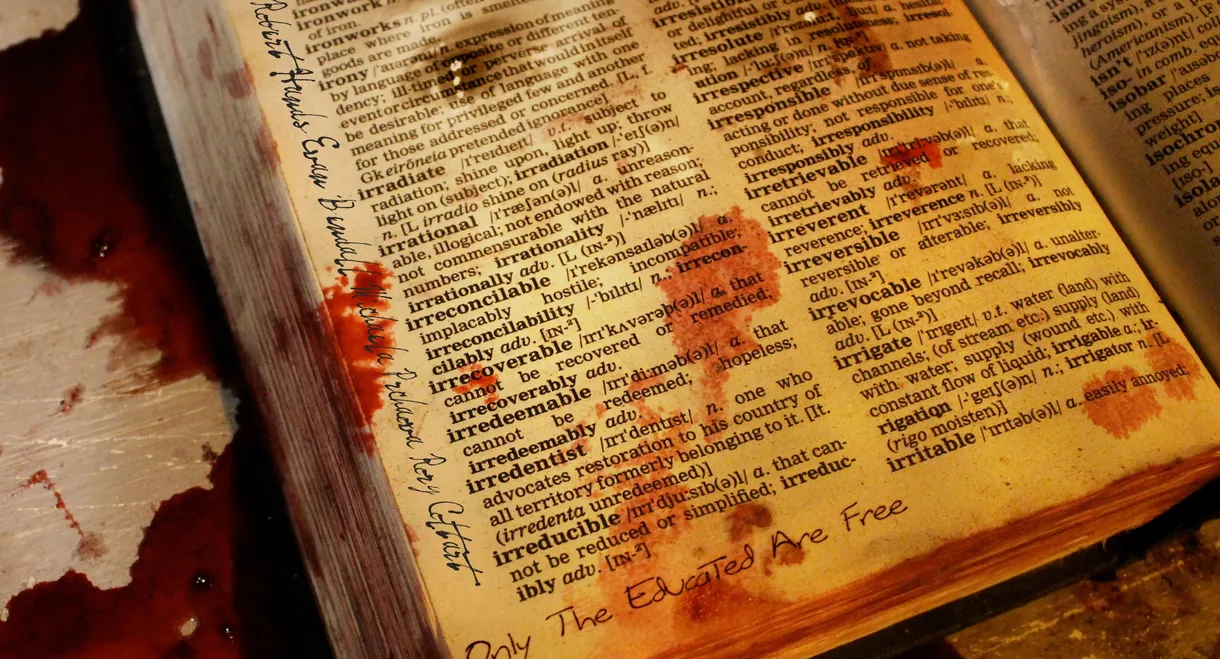 Robert Hands Evan
Only The Educated Are Free
ironwork
ironworks n. pl. (often
place where iron is smelted
goods are made
irony expression of meaning
by language of opposite or different ten
dency; ill-timed or perverse arrival
event or circumstance that would in itself
be desirable; use of language with one
meaning for privileged few and another
for those addressed or concerned. [L, f.
Gk eirōneia pretended ignorance]
irradiate /ɪ'reɪdɪeɪt/ v.t. subject to
radiation; shine upon, light up; throw
light on (subject); irradiation /-'eɪʃ(ə)n/
n. [L irradio shine on (radius ray)]
irrational /ɪ'ræʃən(ə)l/ a. unreason-
able, illogical; not endowed with reason;
not commensurable with the natural
numbers; irrationality /-'nælɪtɪ/ n.;
irrationally adv. [L (IN-²)]
irreconcilable /ɪ'rekənsaɪləb(ə)l/ a.
implacably hostile; incompatible;
irreconcilability /-'bɪlɪtɪ/ n., irrecon-
cilably adv. [IN-²]
irrecoverable /ɪrɪ'kʌvərəb(ə)l/ a. that
cannot be recovered or remedied;
irrecoverably adv.
irredeemable /ɪrɪ'di:məb(ə)l/ a. that
cannot be redeemed; hopeless;
irredeemably adv.
irredentist /ɪrɪ'dentɪst/ n. one who
advocates restoration to his country of
all territory formerly belonging to it. [It.
(irredenta unredeemed)]
irreducible /ɪrɪ'dju:sɪb(ə)l/ a. that can-
not be reduced or simplified; irreduc-
ibly adv. [IN-²]
irresistibly adv.
or delightful or
irresolute
ing; lacking in
irrespective a. not taking
account, regardless, of
irresponsible /ɪrɪ'spɒnsɪb(ə)l/ a.
acting or done without due sense of res-
ponsibility; not responsible for one's
conduct; irresponsibility /-'bɪlɪtɪ/ n.;
irresponsibly adv.
irretrievable a. that
cannot be retrieved or recovered;
irretrievably adv.
irreverent /ɪ'revərənt/ a. lacking
reverence; irreverence n. [L (IN-²)]
irreversible /ɪrɪ'vɜ:sɪb(ə)l/ a. not
reversible or alterable; irreversibly
adv. [IN-²]
irrevocable /ɪ'revəkəb(ə)l/ a. unalter-
able; gone beyond recall; irrevocably
adv. [L (IN-²)]
irrigate /'ɪrɪgeɪt/ v.t. water (land) with
channels; (of stream etc.) supply (land)
with water; supply (wound etc.) with
constant flow of liquid; irrigable a.; ir-
rigation /-'geɪʃ(ə)n/ n.; irrigator n. [L
(rigo moisten)]
irritable /'ɪrɪtəb(ə)l/ a. easily annoyed;
ing a
heroism), or a
(Americanism).
isn't
iso- in comb. equ
isobar
ing places
pressure; is
weight]
isochron
ing equ
[iso-]